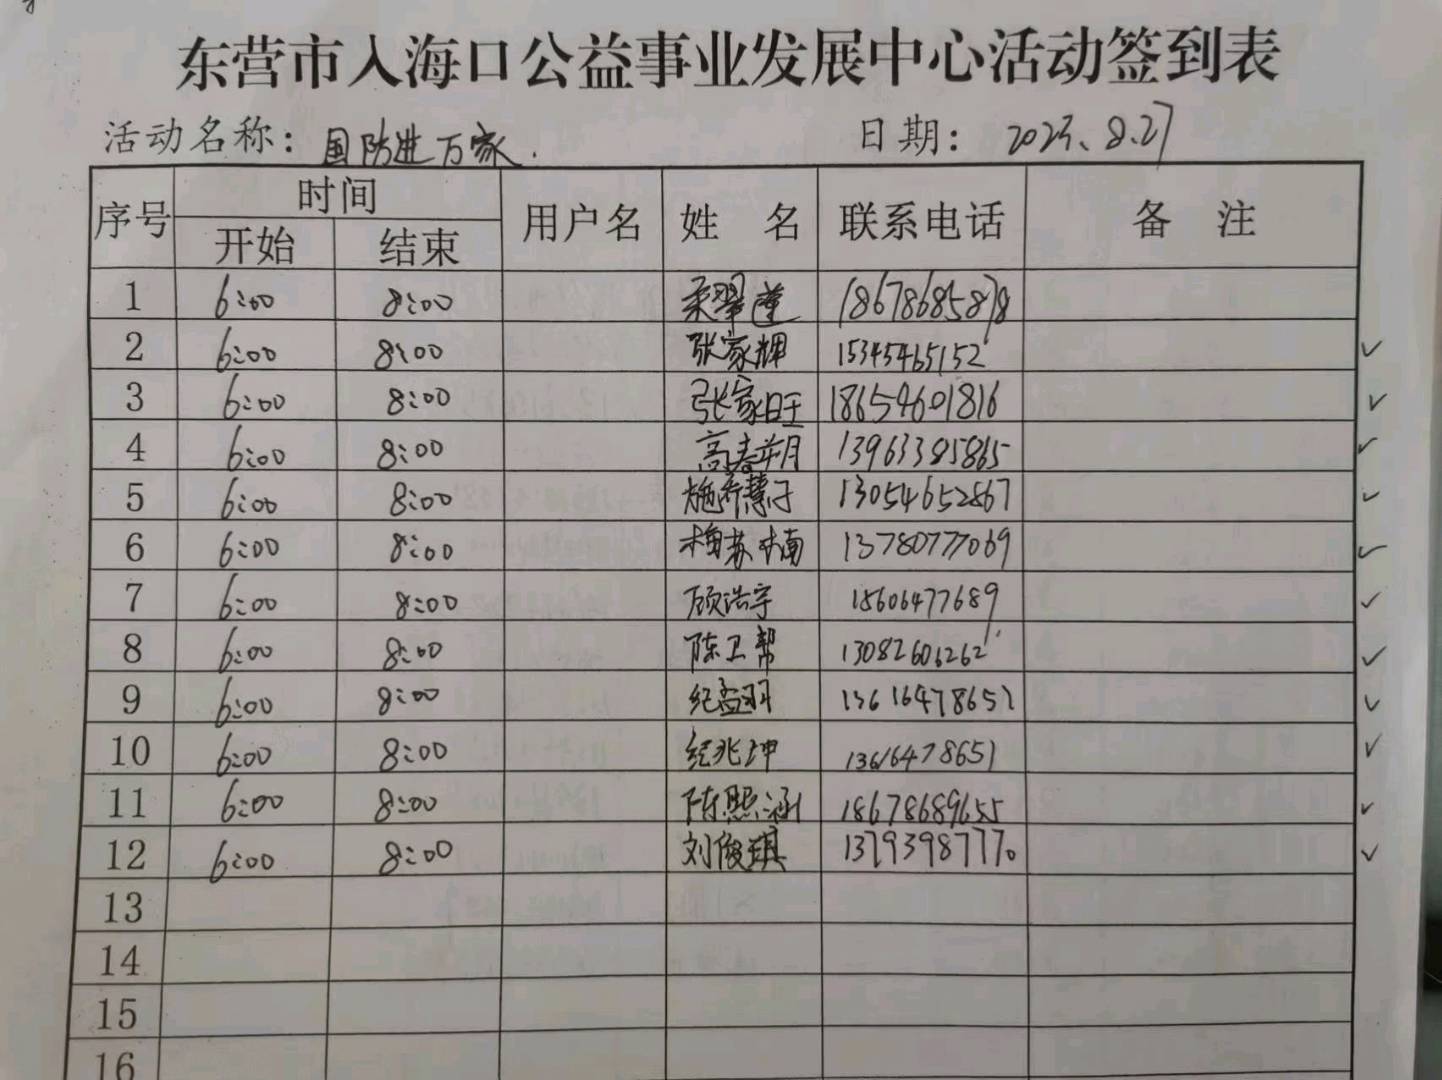 东营市入海口公益事业发展中心活动签到表
活动名称：国防进万家. 日期：2023.8.27
序号 时间 用户名 姓名 联系电话 备注
开始 结束
1 6:00 8:00 18678685878
2 6:00 8:00 张家辉 15345465152
3 6:00 8:00 张家旺 18654601816
4 6:00 8:00 高春玥 13963385865
5 6:00 8:00 施乔慧子 13054652867
6 6:00 8:00 梅苏楠 13780777069
7 6:00 8:00 顾浩宇 15606477689
8 6:00 8:00 陈卫帮 13082606262
9 6:00 8:00 纪孟羽 13616478651
10 6:00 8:00 纪兆坤 13616478651
11 6:00 8:00 陈熙涵 18678689655
12 6:00 8:00 刘俊琪 13793987770
13
14
15
16